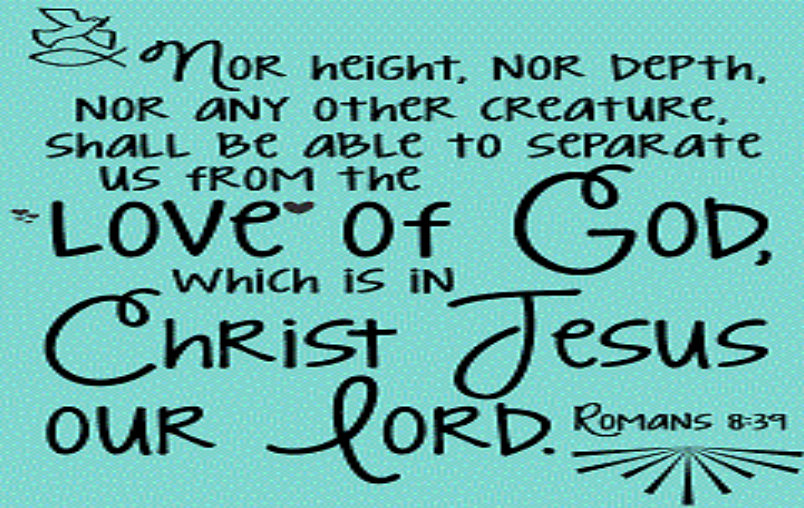 Nor height, nor depth,
nor any other creature,
shall be able to separate
us from the
Love of God,
which is in
Christ Jesus
our Lord.
Romans 8:39